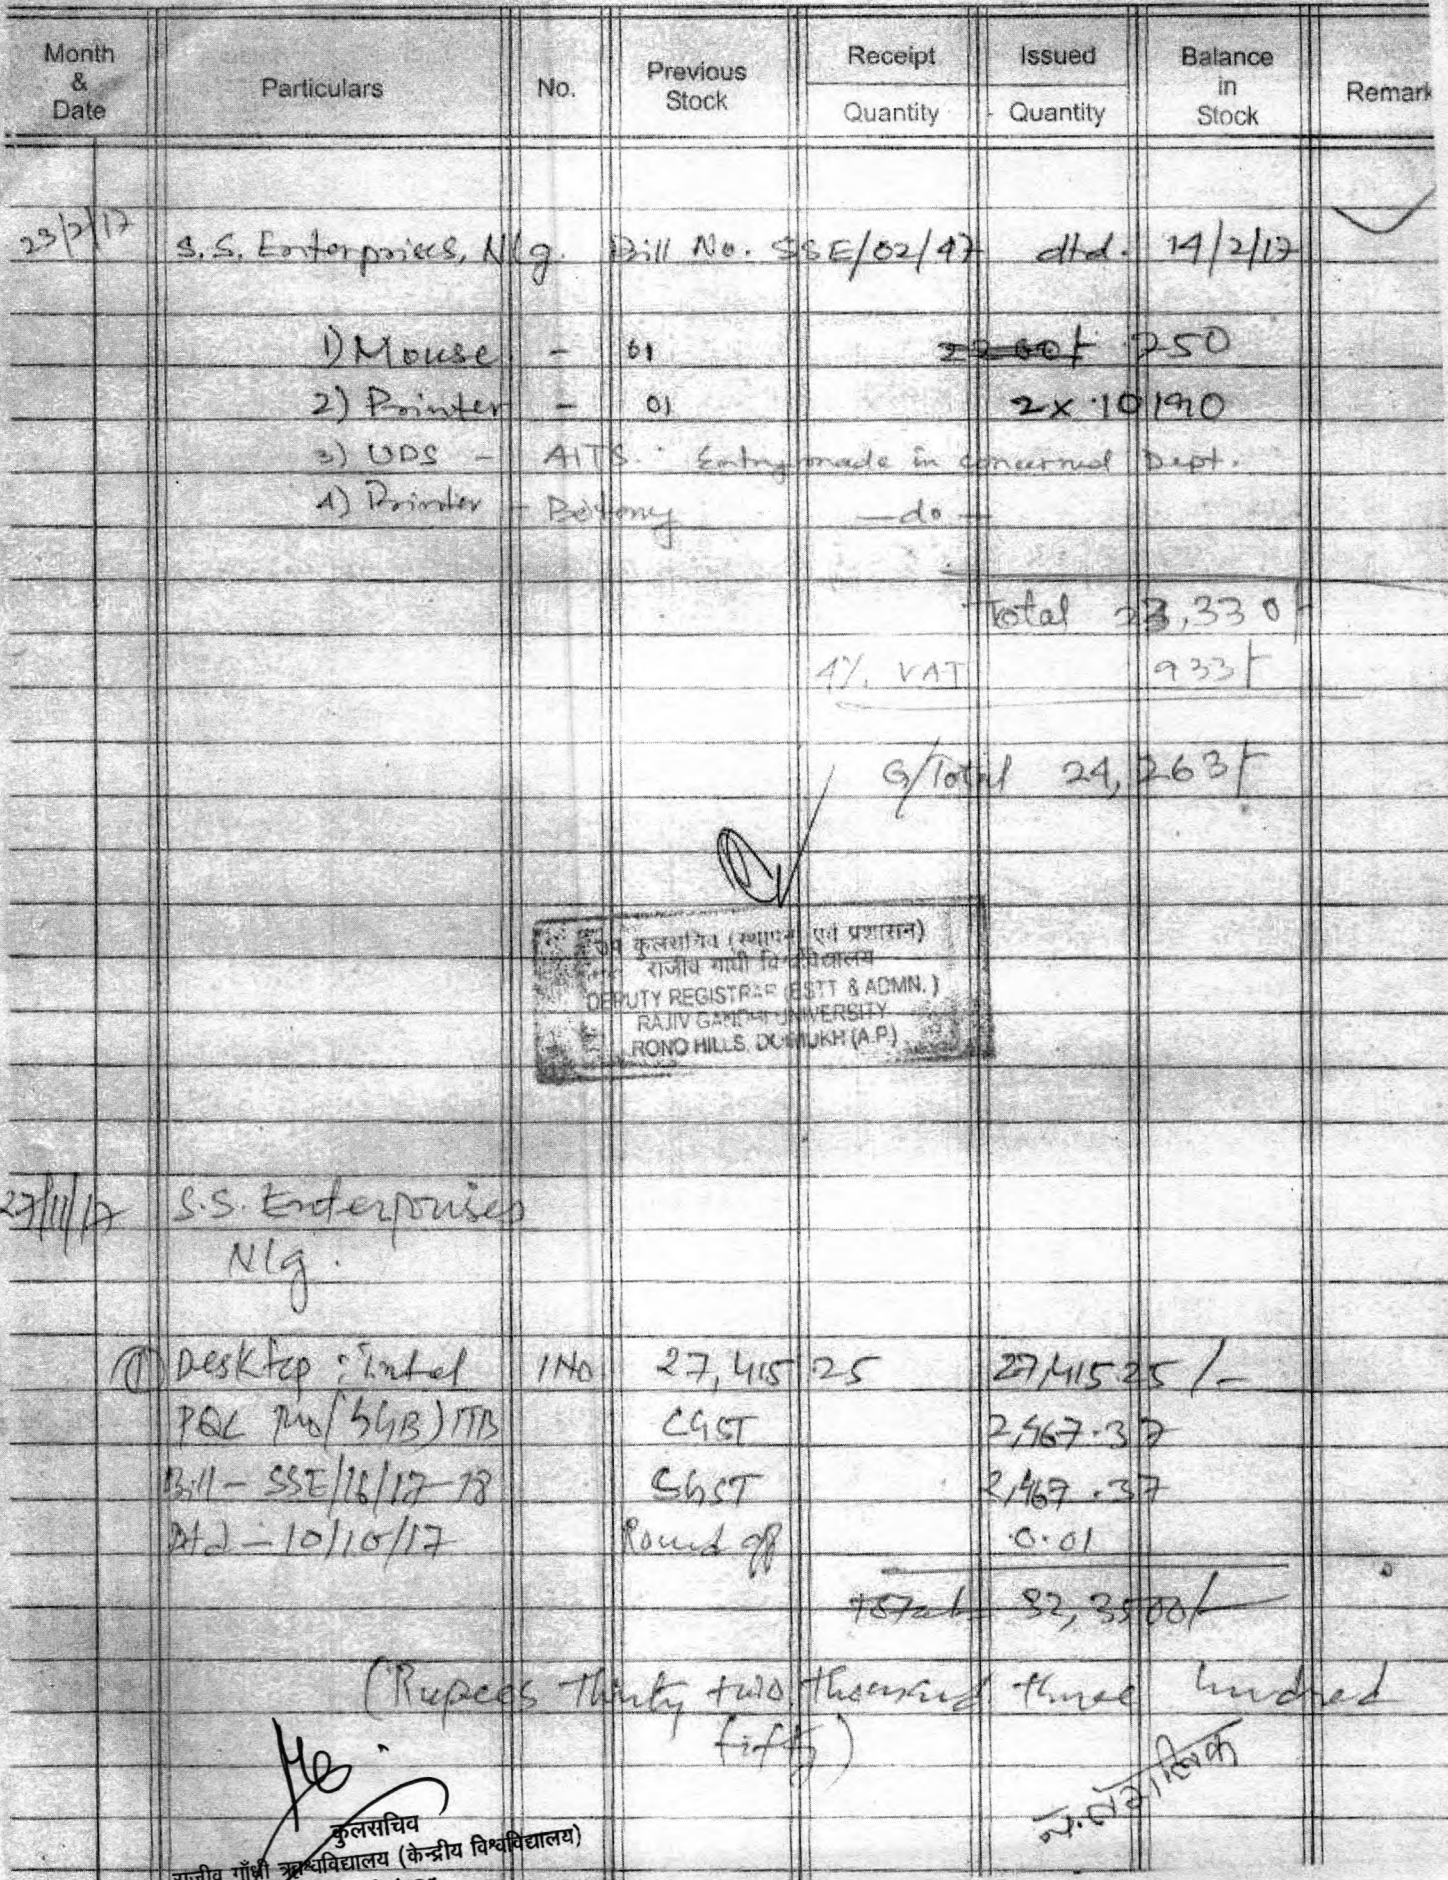 Month & Date Particulars No. Previous Stock Receipt Quantity Issued Quantity Balance in Stock Remark
23/2/17 S.S. Enterprises, Nlg. Bill No. SSE/02/47 dtd. 14/2/17
1) Mouse - 01 750
2) Printer - 01 2x 10190
3) UDS - AITS. Entry made in concerned Dept.
4) Printer - Botony -do-
Total 23,330/-
4% VAT 933/-
G/Total 24,263/-
उप कुलसचिव (स्थापना एवं प्रशासन)
राजीव गांधी विश्वविद्यालय
DEPUTY REGISTRAR (ESTT & ADMN.)
RAJIV GANDHI UNIVERSITY
RONO HILLS, DOIMUKH (A.P.)
27/11/17 S.S. Enterprises
Nlg.
① Desktop : Intel 1No 27,415 25 27,415 25/-
CGST 2,467.37
Bill - SSE/16/17-18 SGST 2,467.37
Dtd - 10/10/17 Round off 0.01
Total 32,3500/-
(Rupees Thirty two thousand three hundred
fifty)
कुलसचिव
राजीव गाँधी विश्वविद्यालय (केन्द्रीय विश्वविद्यालय)